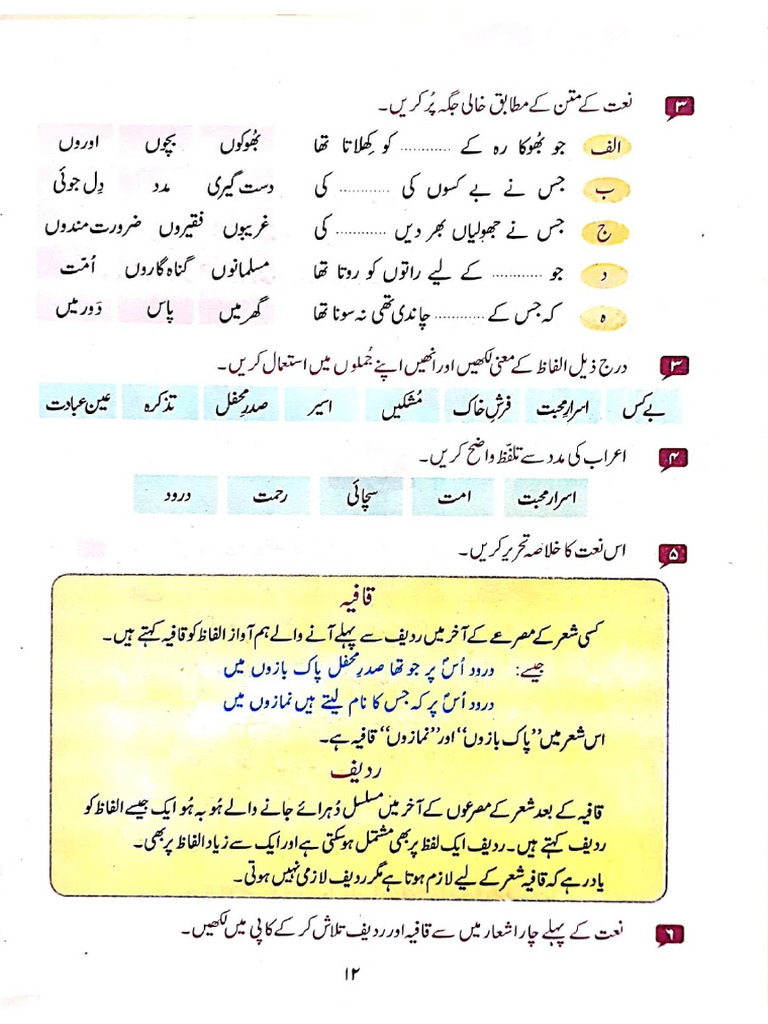 ۳ نعت کے متن کے مطابق خالی جگہ پُر کریں۔
الف جو بھُوکا رہ کے ............ کو کھِلاتا تھا بھُوکوں بچوں اوروں
ب جس نے بے کسوں کی ............ کی دست گیری مدد دِل جوئی
ج جس نے جھولیاں بھر دیں ............ کی غریبوں فقیروں ضرورت مندوں
د جو ............ کے لیے راتوں کو روتا تھا مسلمانوں گناہ گاروں اُمّت
ہ کہ جس کے ............ چاندی تھی نہ سونا تھا گھر میں پاس دَور میں
۳ درج ذیل الفاظ کے معنی لکھیں اور انھیں اپنے جُملوں میں استعمال کریں۔
بے کس اسرارِ محبت فرشِ خاک مُشکیں اسیر صدرِ محفل تذکرہ عین عبادت
۴ اعراب کی مدد سے تلفّظ واضح کریں۔
اسرار محبت امت سچائی رحمت درود
۵ اس نعت کا خلاصہ تحریر کریں۔
قافیہ
کسی شعر کے مصرعے کے آخر میں ردیف سے پہلے آنے والے ہم آواز الفاظ کو قافیہ کہتے ہیں۔
جیسے: درود اُسؐ پر جو تھا صدرِ محفل پاک بازوں میں
درود اُسؐ پر کہ جس کا نام لیتے ہیں نمازوں میں
اس شعر میں ”پاک بازوں“ اور ”نمازوں“ قافیہ ہے۔
ردیف
قافیہ کے بعد شعر کے مصرعوں کے آخر میں مسلسل دُہرائے جانے والے ہُو بہ ہُو ایک جیسے الفاظ کو
ردیف کہتے ہیں۔ ردیف ایک لفظ پر بھی مشتمل ہو سکتی ہے اور ایک سے زیاد الفاظ پر بھی۔
یاد رہے کہ قافیہ شعر کے لیے لازم ہوتا ہے مگر ردیف لازمی نہیں ہوتی۔
۶ نعت کے پہلے چار اشعار میں سے قافیہ اور ردیف تلاش کر کے کاپی میں لکھیں۔
۱۲